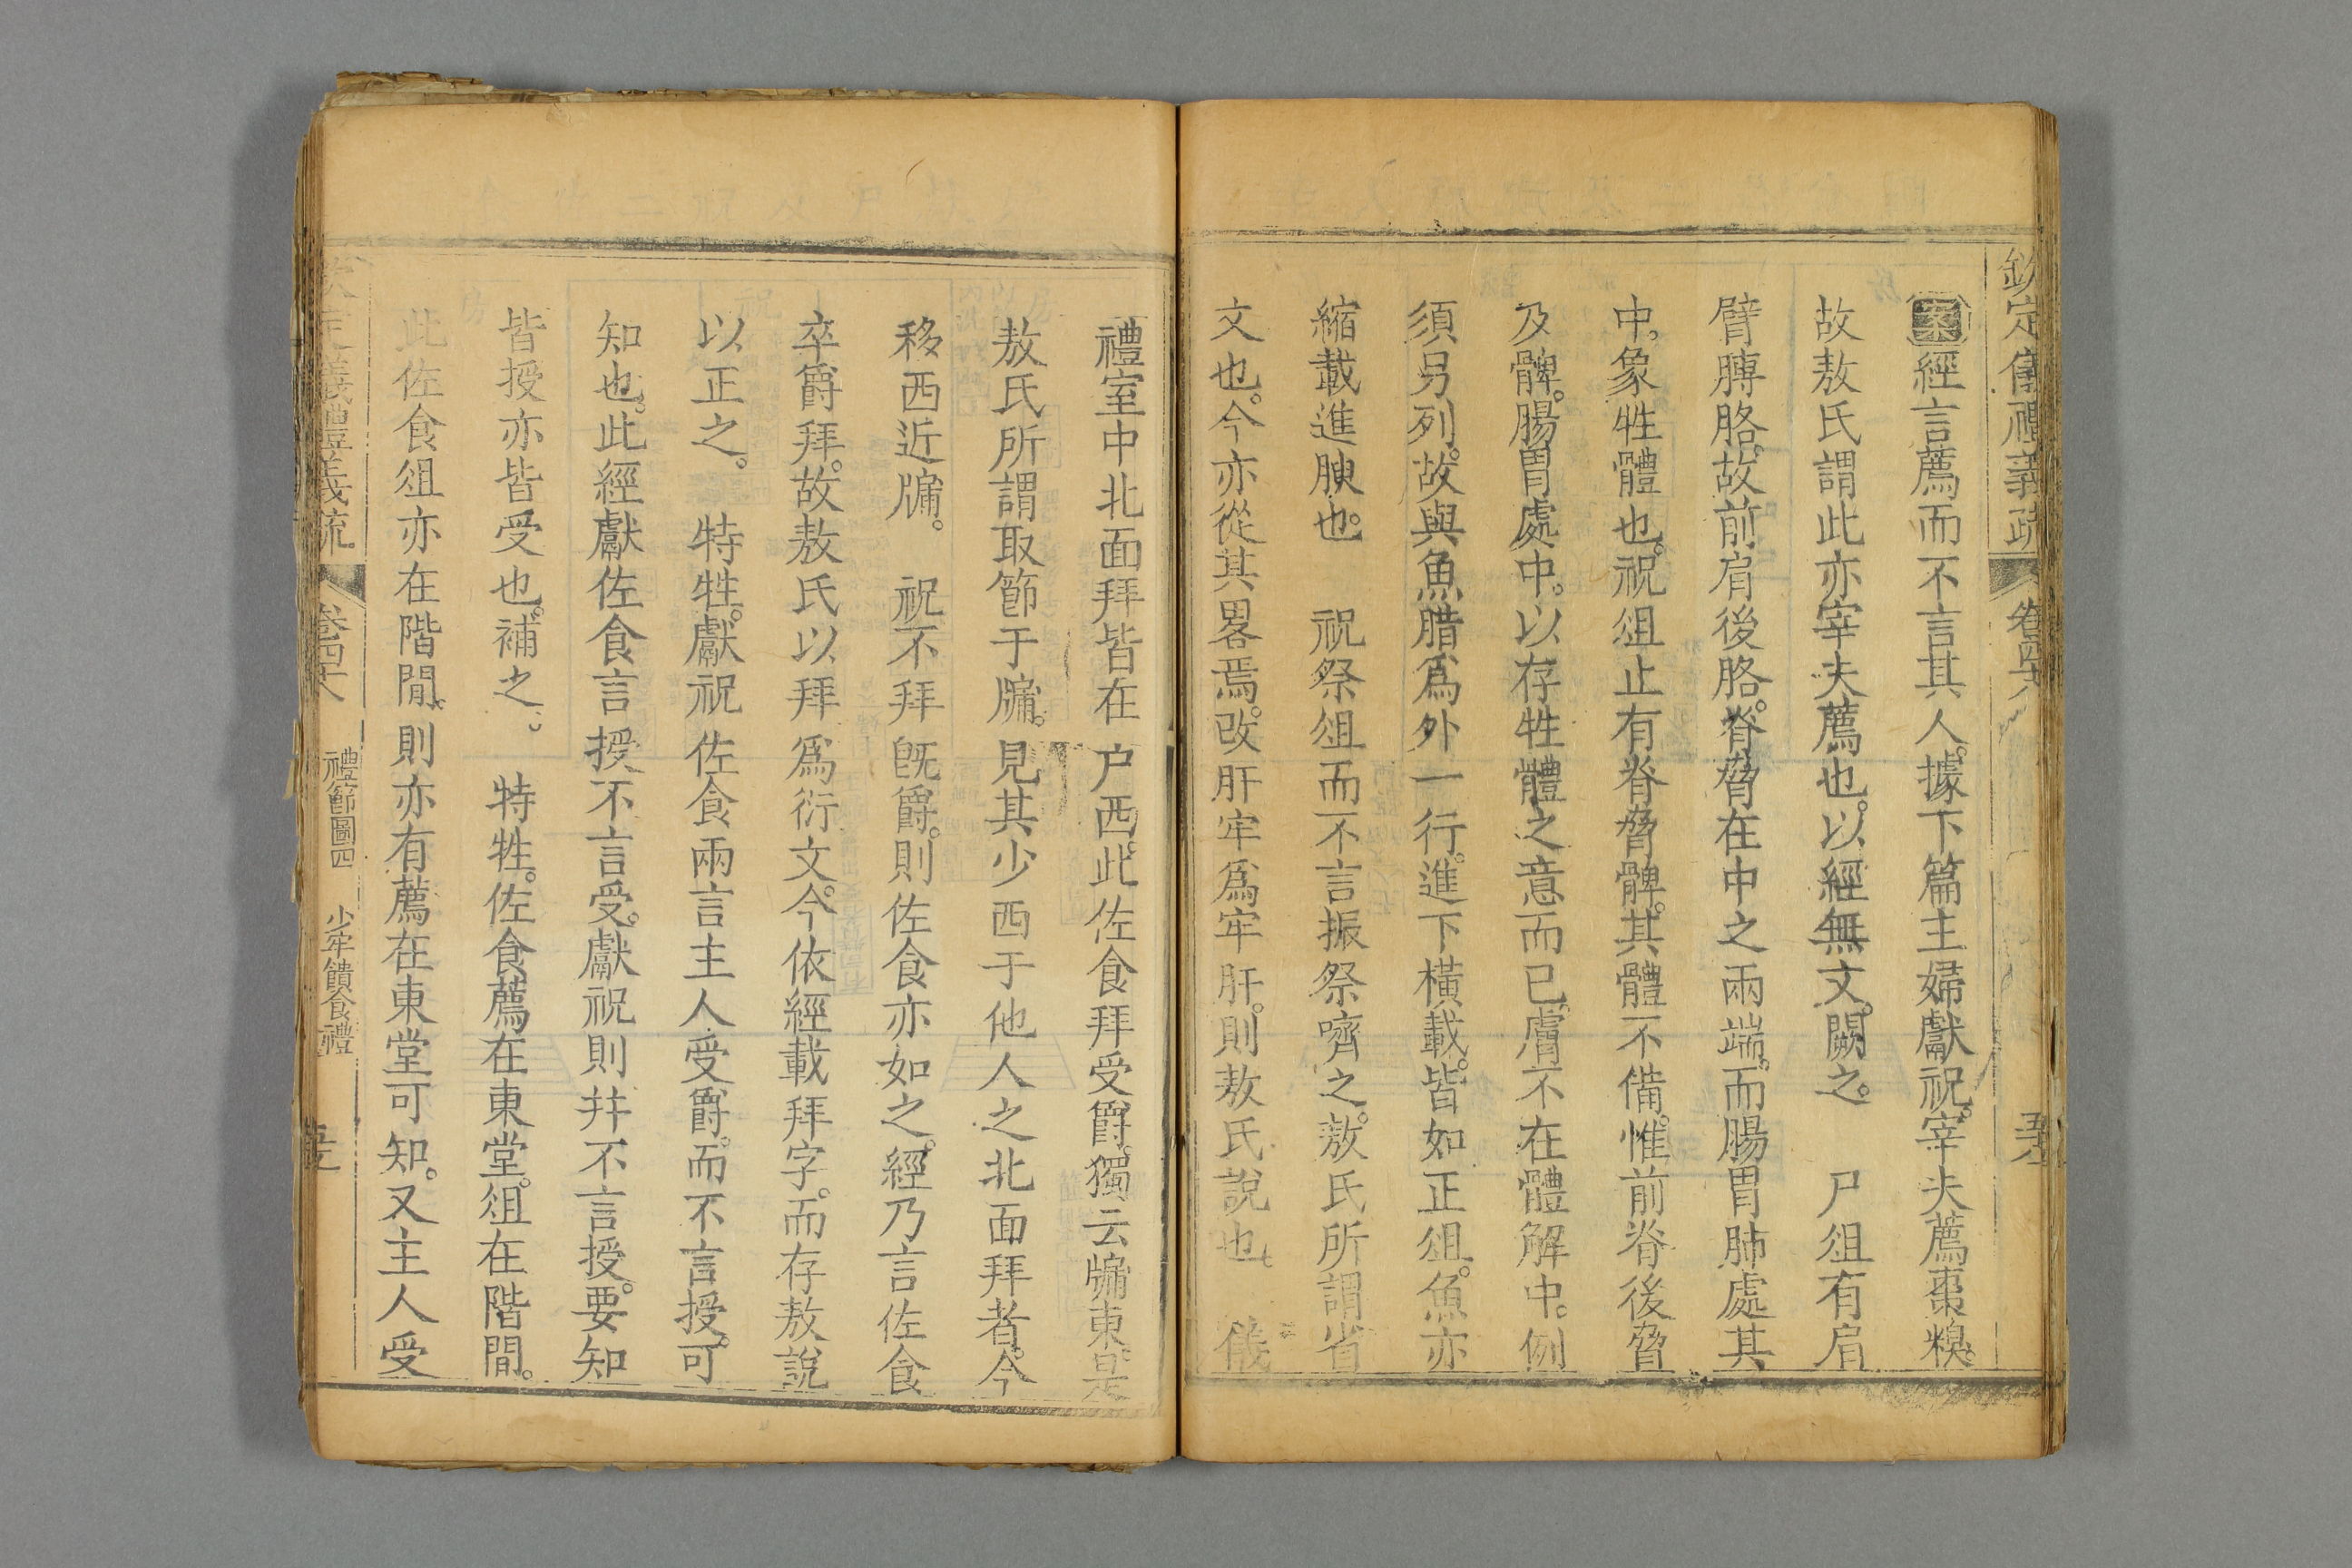 欽定儀禮義疏 卷四十八
案經言薦而不言其人。據下篇主婦獻祝。宰夫薦棗糗。
故敖氏謂此亦宰夫薦也。以經無文。闕之。 尸俎有肩
臂膊胳。故前肩後胳。脊脅在中之兩端。而腸胃肺處其
中。象牲體也。祝俎止有脊脅髀。其體不備。惟前脊後脅
及髀。腸胃處中。以存牲體之意而已。膚不在體解中。例
須另列。故與魚腊爲外一行。進下橫載。皆如正俎。魚亦
縮載進腴也。 祝祭俎而不言振祭嚌之。敖氏所謂省
文也。今亦從其畧焉。改肝牢爲牢肝。則敖氏說也。 儀
禮室中北面拜皆在戶西。此佐食拜受爵。獨云牖東。是
敖氏所謂取節于牖。見其少西于他人之北面拜者。今
移西近牖。 祝不拜旣爵。則佐食亦如之。經乃言佐食
卒爵拜。故敖氏以拜爲衍文。今依經載拜字。而存敖說
以正之。 特牲。獻祝佐食兩言主人受爵。而不言授。可
知也。此經獻佐食言授不言受。獻祝則幷不言授。要知
皆授亦皆受也。補之。 特牲。佐食薦在東堂。俎在階閒。
此佐食俎亦在階閒。則亦有薦在東堂可知。又主人受
欽定儀禮義疏 卷四十八 禮節圖四 少牢饋食禮